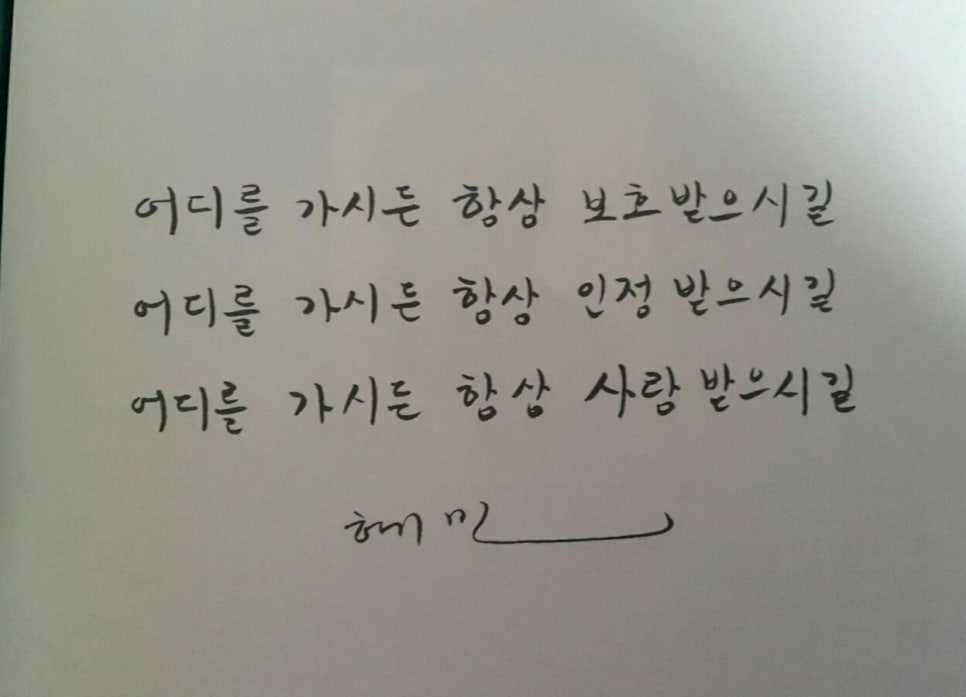 어디를 가시든 항상 보호받으시길
어디를 가시든 항상 인정받으시길
어디를 가시든 항상 사랑받으시길
혜민